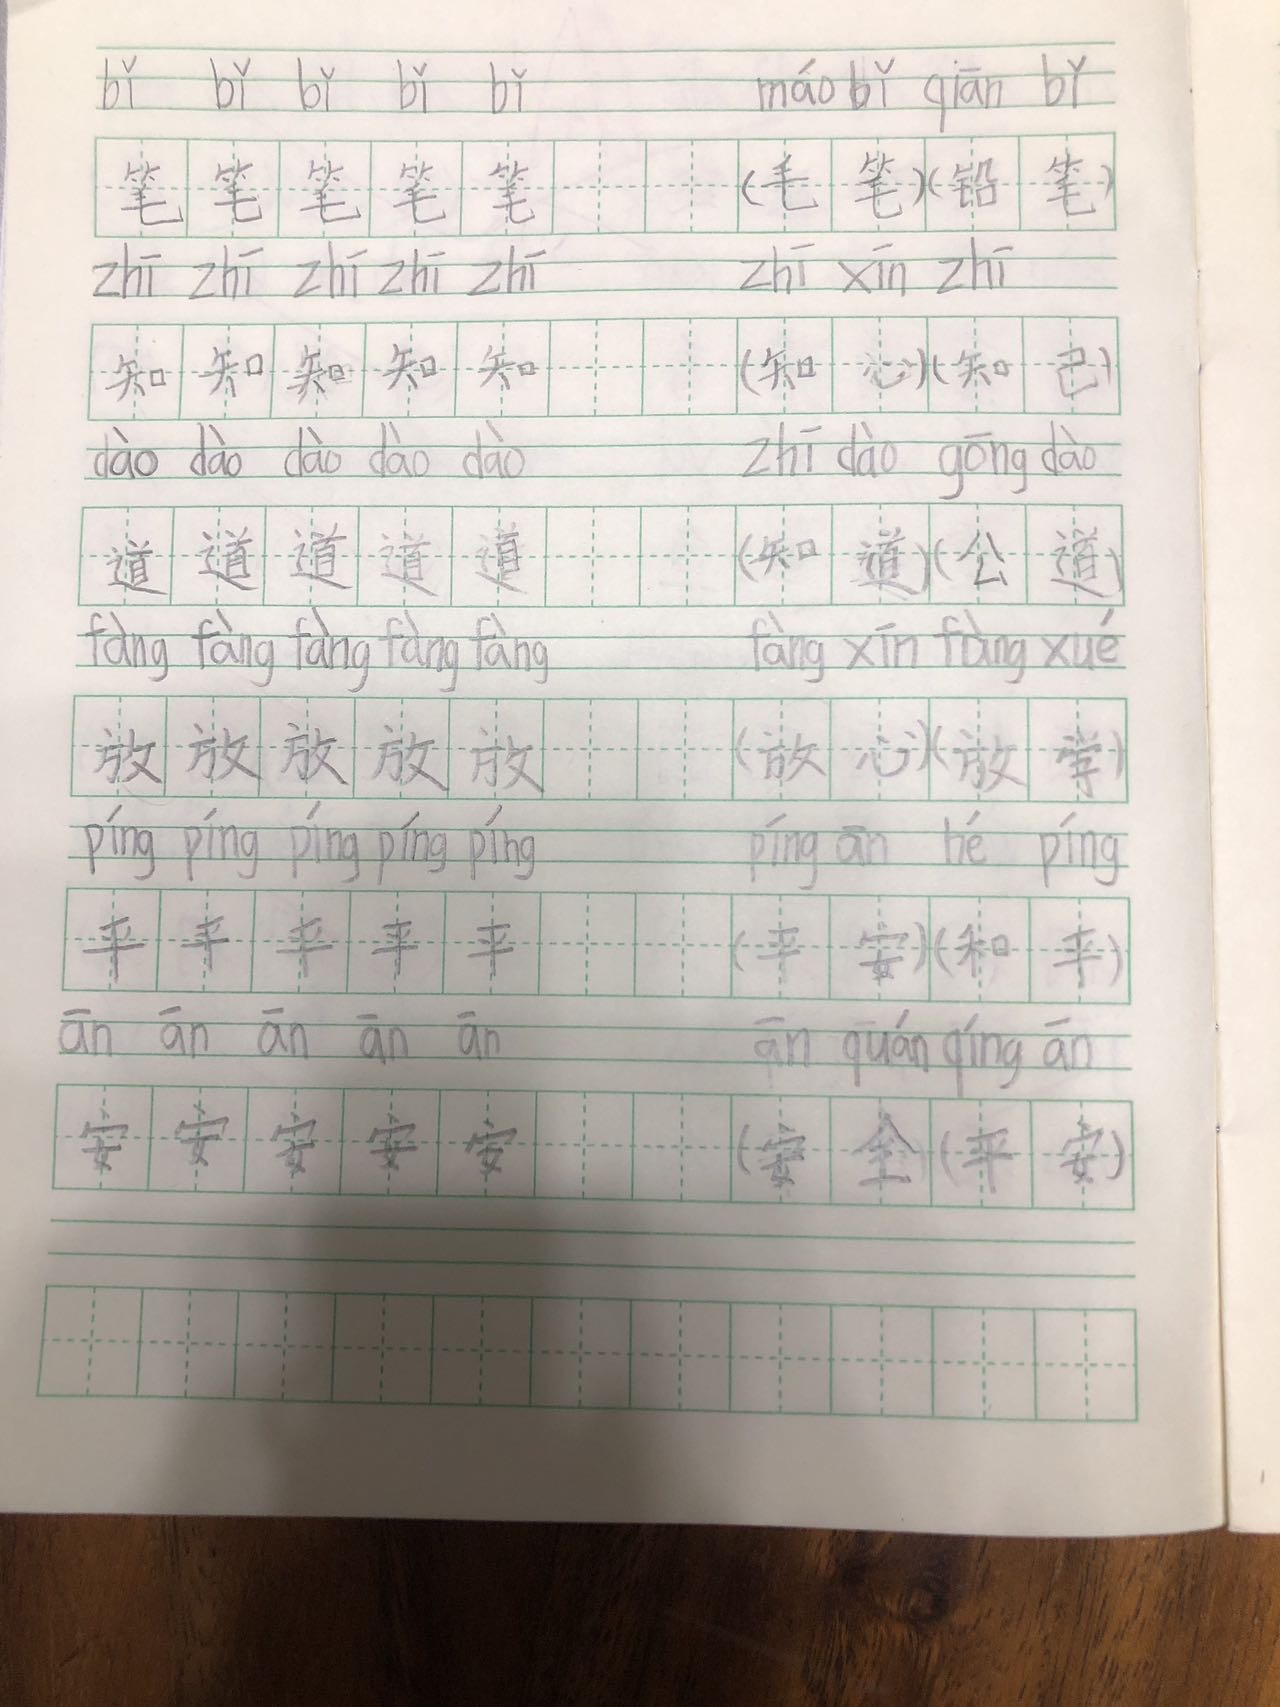 bǐ bǐ bǐ bǐ bǐ máo bǐ qiān bǐ
笔 笔 笔 笔 笔 (毛 笔)(铅 笔)
zhī zhī zhī zhī zhī zhī xīn zhī
知 知 知 知 知 (知 心)(知 己)
dào dào dào dào dào zhī dào gōng dào
道 道 道 道 道 (知 道)(公 道)
fàng fàng fàng fàng fàng fàng xīn fàng xué
放 放 放 放 放 (放 心)(放 学)
píng píng píng píng píng píng ān hé píng
平 平 平 平 平 (平 安)(和 平)
ān ān ān ān ān ān quán qíng ān
安 安 安 安 安 (安 全(平 安)